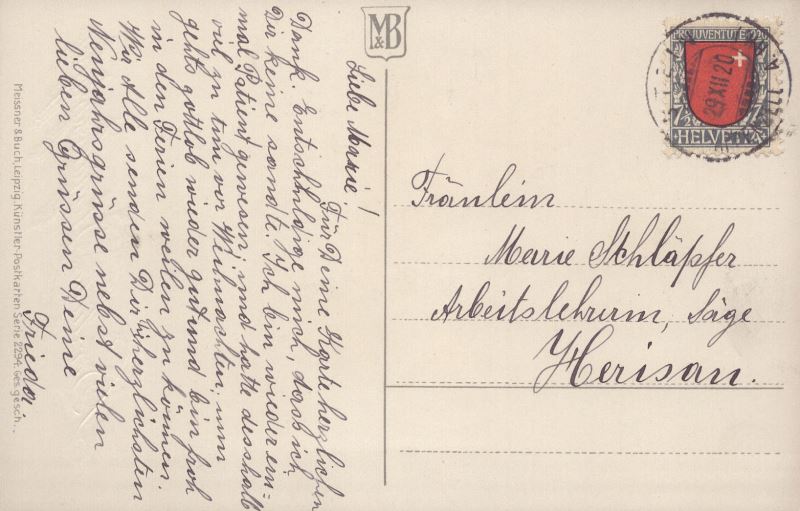 Liebe Marie!
Für Deine Karte herzlichen
Dank. Entschuldige mich, dass ich
Dir keine sandte. Ich bin wieder ein-
mal Patient gewesen, und hatte desshalb
viel zu tun vor Weihnachten, nun
gehts gottlob wieder gut und bin froh
in den Ferien weilen zu können.
Wir Alle senden Dir herzlichsten
Neujahrsgrüsse nebst vielen
lieben Grüssen Deine
Frieda.
Meissner & Buch, Leipzig. Künstler-Postkarten Serie 2294. Ges. gesch.
M&B
PRO JUVENTUTE 1920
7½
HELVETIA
29.XII.20
Fräulein
Marie Schläpfer
Arbeitslehrerin, Säge
Herisau.